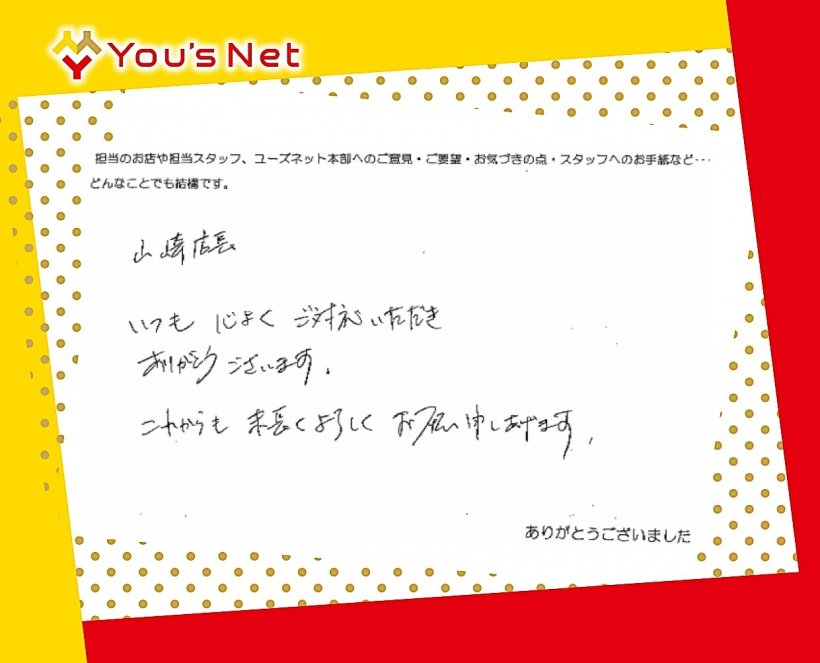 You's Net
担当のお店や担当スタッフ、ユーズネット本部へのご意見・ご要望・お気づきの点・スタッフへのお手紙など・・・
どんなことでも結構です。
山崎店長
いつも 心よく ご対応いただき
ありがとうございます。
これからも 末長くよろしく お願い申しあげます。
ありがとうございました